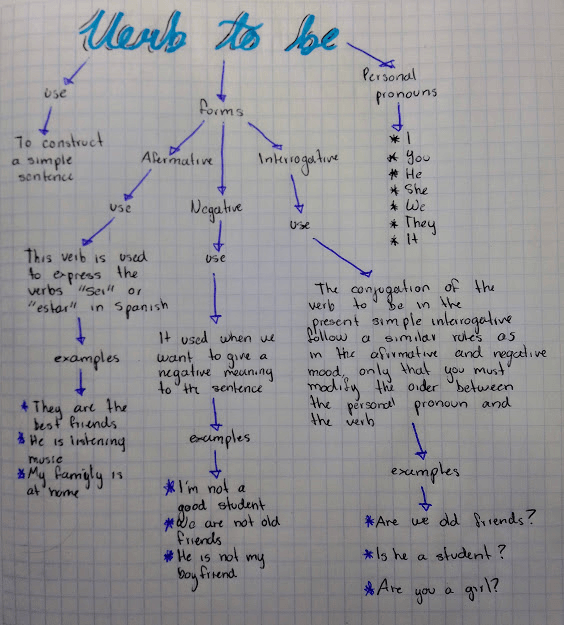 Verb to be
use
To construct
a simple
sentence
forms
Afermative
use
This verb is used
to express the
verbs "ser" or
"estar" in Spanish
examples
* They are the
best friends
* He is listening
music
* My family is
at home
Negative
use
It used when we
want to give a
negative meaning
to th sentence
examples
* I'm not a
good student
* We are not old
friends
* He is not my
boyfriend
Interrogative
use
The conjugation of the
verb to be in the
present simple interrogative
follow a similar rules as
in the afirmative and negative
mood, only that you must
modify the order between
the personal pronoun and
the verb
examples
* Are we old friends?
* Is he a student?
* Are you a girl?
Personal
pronouns
* I
* You
* He
* She
* We
* They
* It